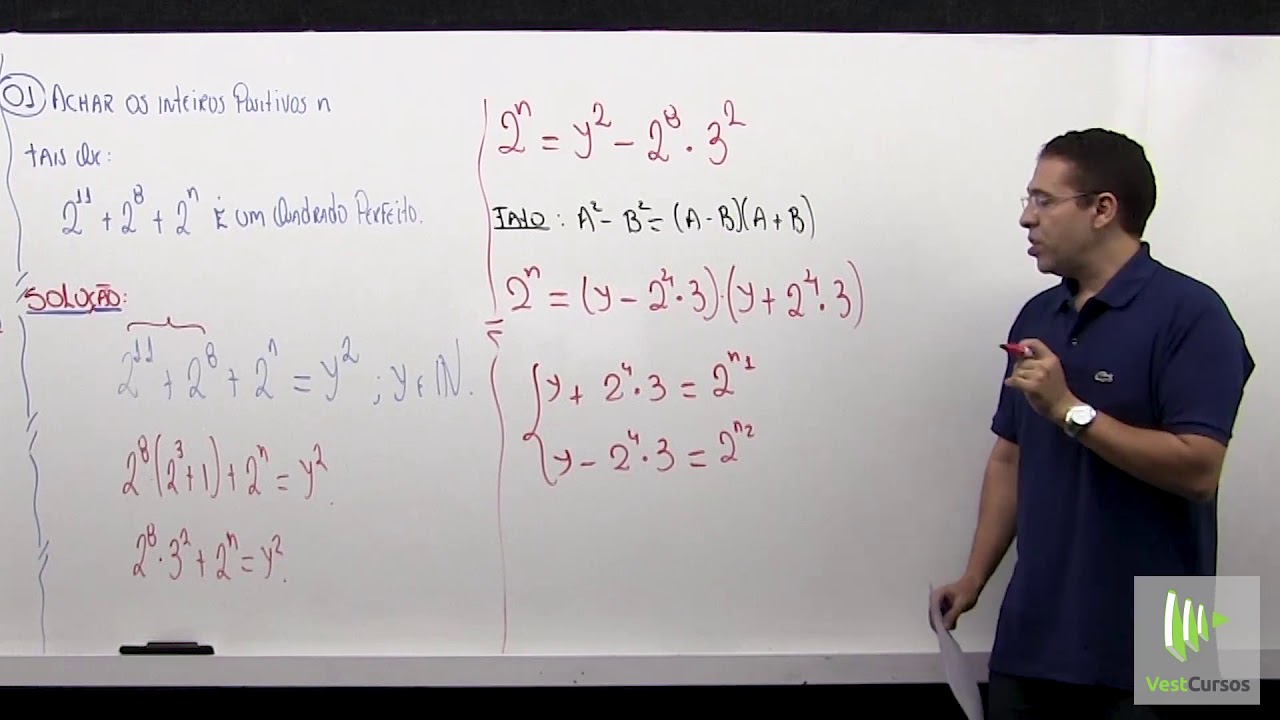 01 ACHAR OS INTEIROS POSITIVOS n
TAIS QUE:
2^11 + 2^8 + 2^n É UM QUADRADO PERFEITO.
SOLUÇÃO:
2^11 + 2^8 + 2^n = y^2 ; y ∈ IN.
2^8·(2^3+1) + 2^n = y^2.
2^8·3^2 + 2^n = y^2.
2^n = y^2 - 2^8·3^2
FATO: A^2 - B^2 = (A - B)(A + B)
2^n = (y - 2^4·3)·(y + 2^4·3)
y + 2^4·3 = 2^n1
y - 2^4·3 = 2^n2
VestCursos